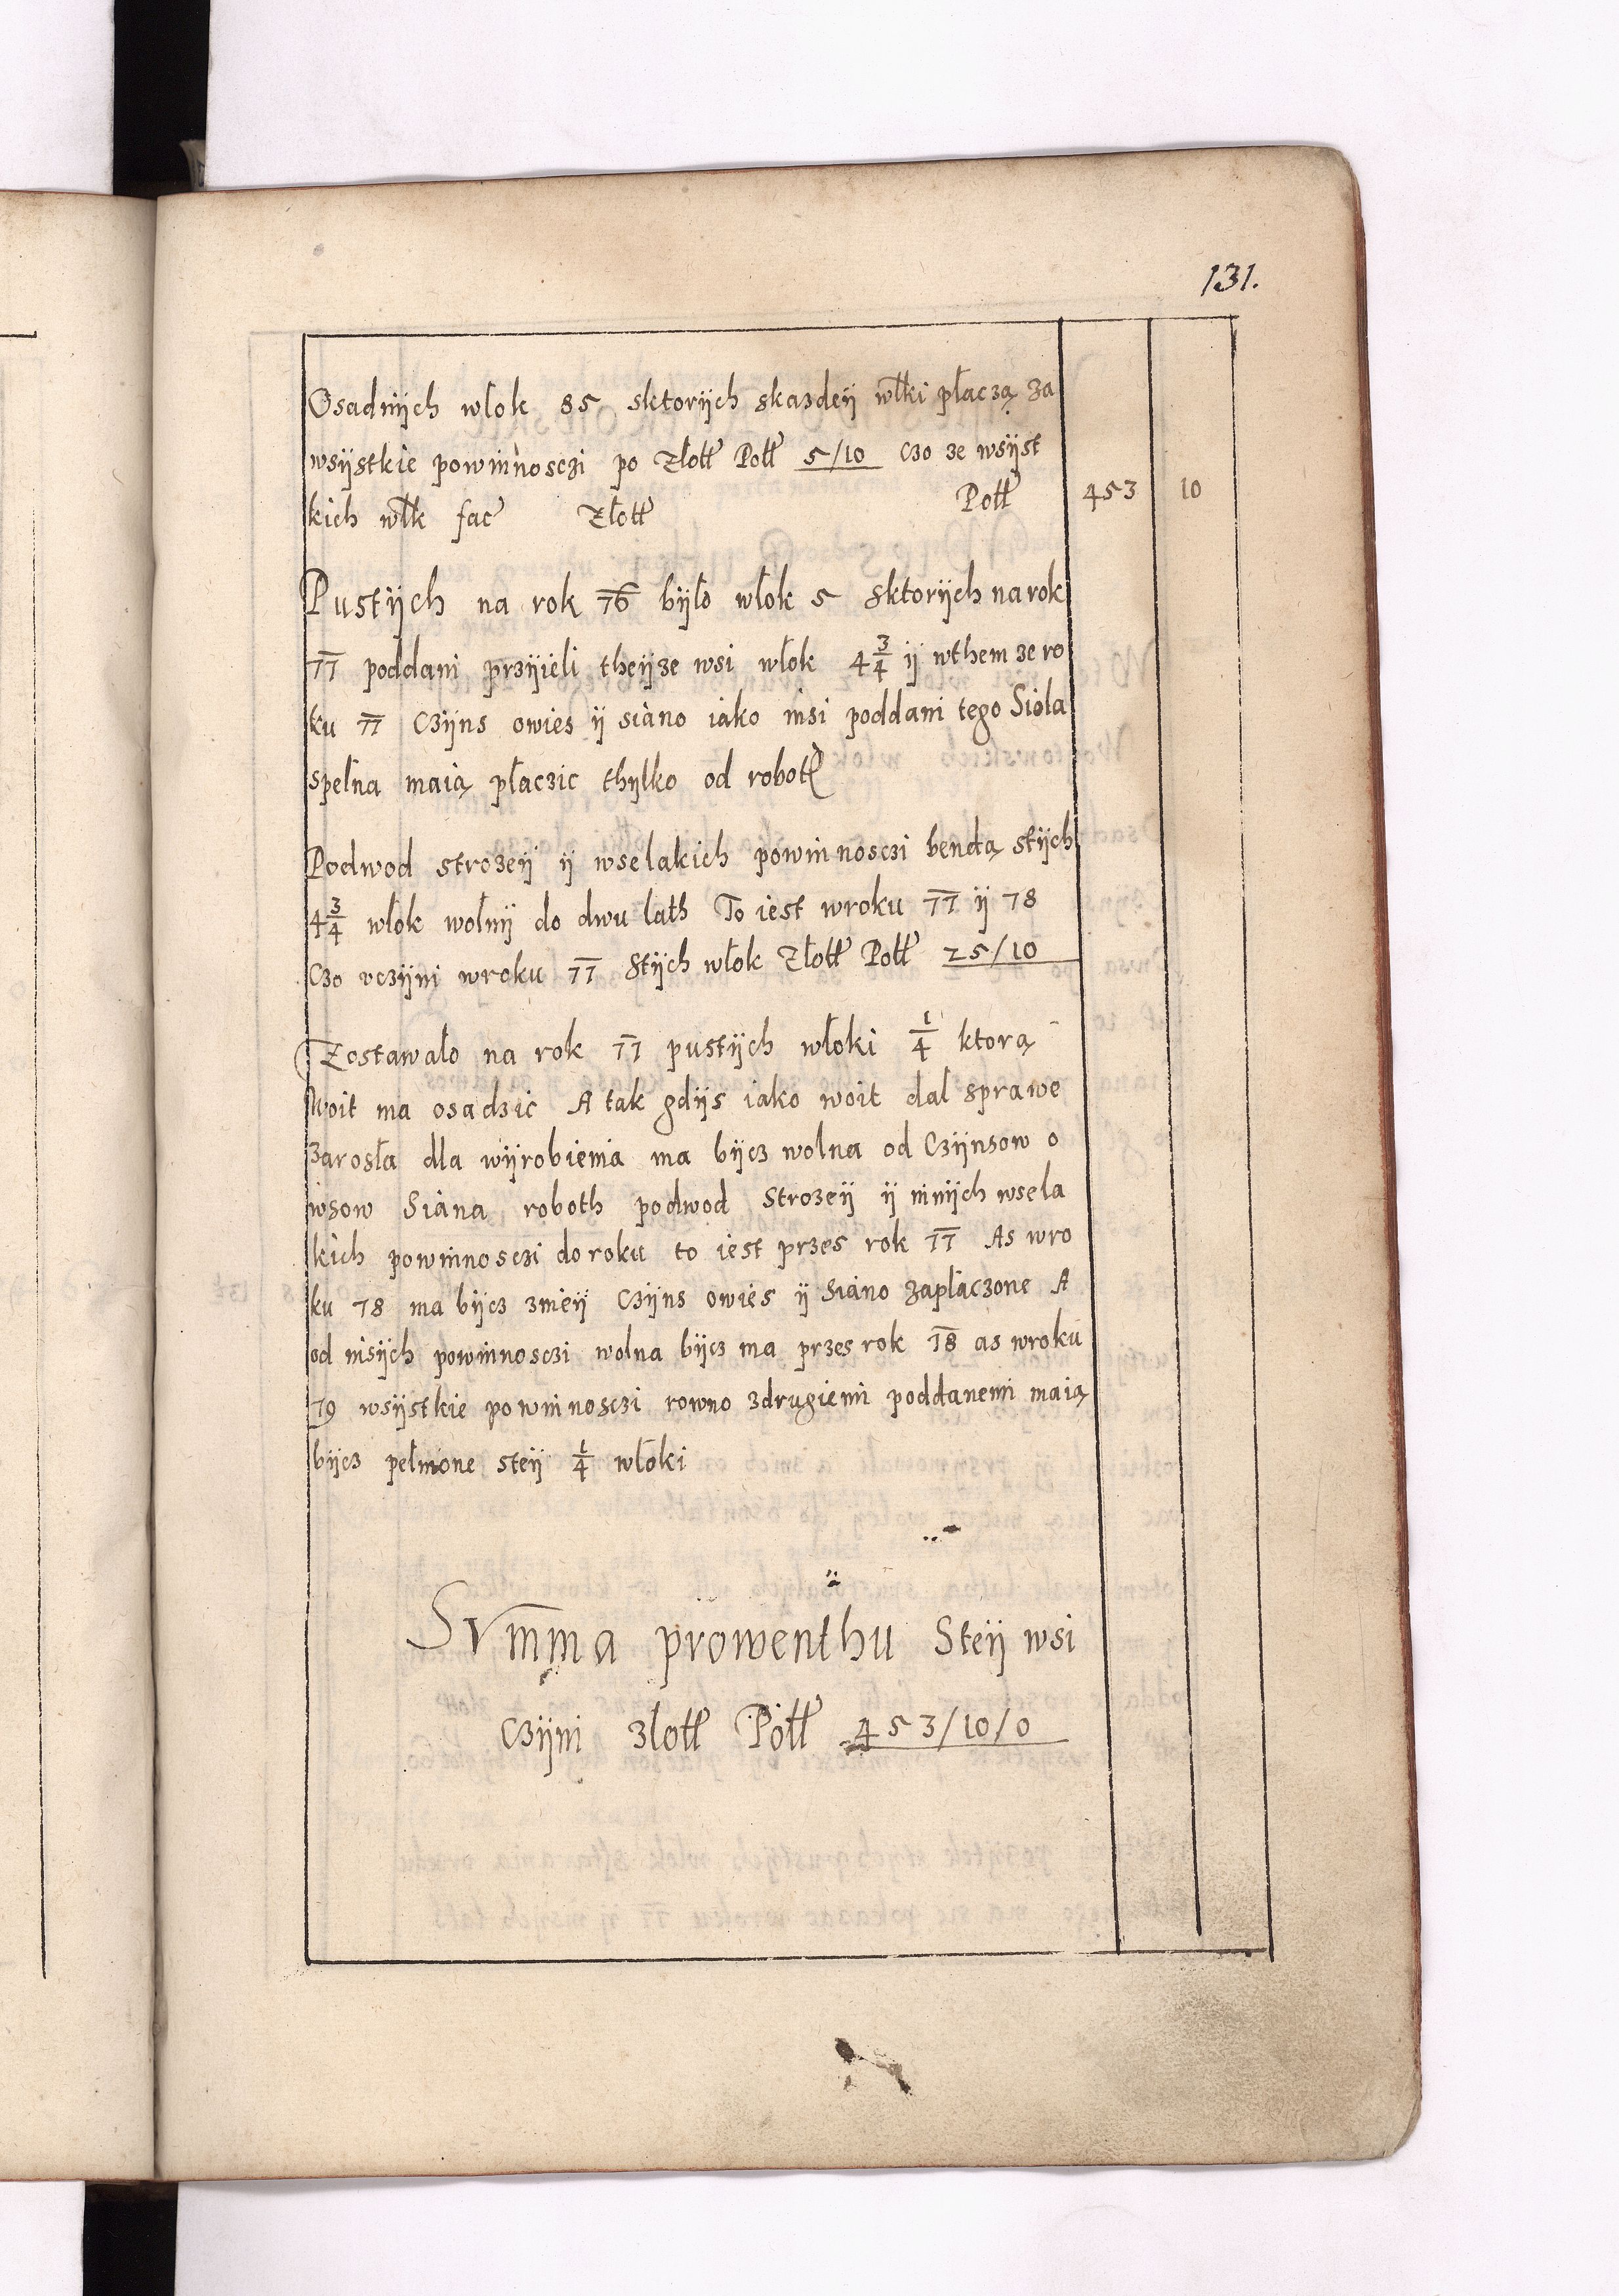 131.
Osadnÿch wlok 85 sktorÿch skazdeÿ włki płaczą za
wsÿstkie powinnosczi po Złott Poll 5/10 Czo ze wsÿst
kich włk fac Złott Poll 453 10
Pustÿch na rok 76 bÿło włok 5 sktorÿch na rok
77 poddani przÿieli theÿze wsi włok 4 3/4 ÿ wthem ze ro
ku 77 Czÿns owies ÿ siano iako insi poddani tego Sioła
spełna maią płaczic thÿlko od robot
Podwod strozeÿ ÿ wselakich powinnosczi bendą stÿch
4 3/4 włok wolnÿ do dwu lath To iest wroku 77 ÿ 78
Czo vczÿni wroku 77 Stÿch włok Złott Poll 25/10
Zostawało na rok 77 pustÿch włoki 1/4 ktorą
Woit ma osadzic A tak gdÿs iako woit dal sprawe
zarosła dla wÿrobienia ma bÿcz wolna od Czÿnsow o
wsow Siana roboth podwod Strozeÿ ÿ innÿch wsela
kich powinnosczi do roku to iest przes rok 77 As wro
ku 78 ma bÿcz znieÿ Czÿns owies ÿ Siano zapłaczone A
od insÿch powinnosczi wolna bÿcz ma przes rok 78 as wroku
79 wsÿstkie powinnosczi rowno zdrugiemi poddanemi maią
bÿcz pełnione steÿ 1/4 włoki
Svmma prowenthu Steÿ wsi
Czÿni złott Poll 453/10/0